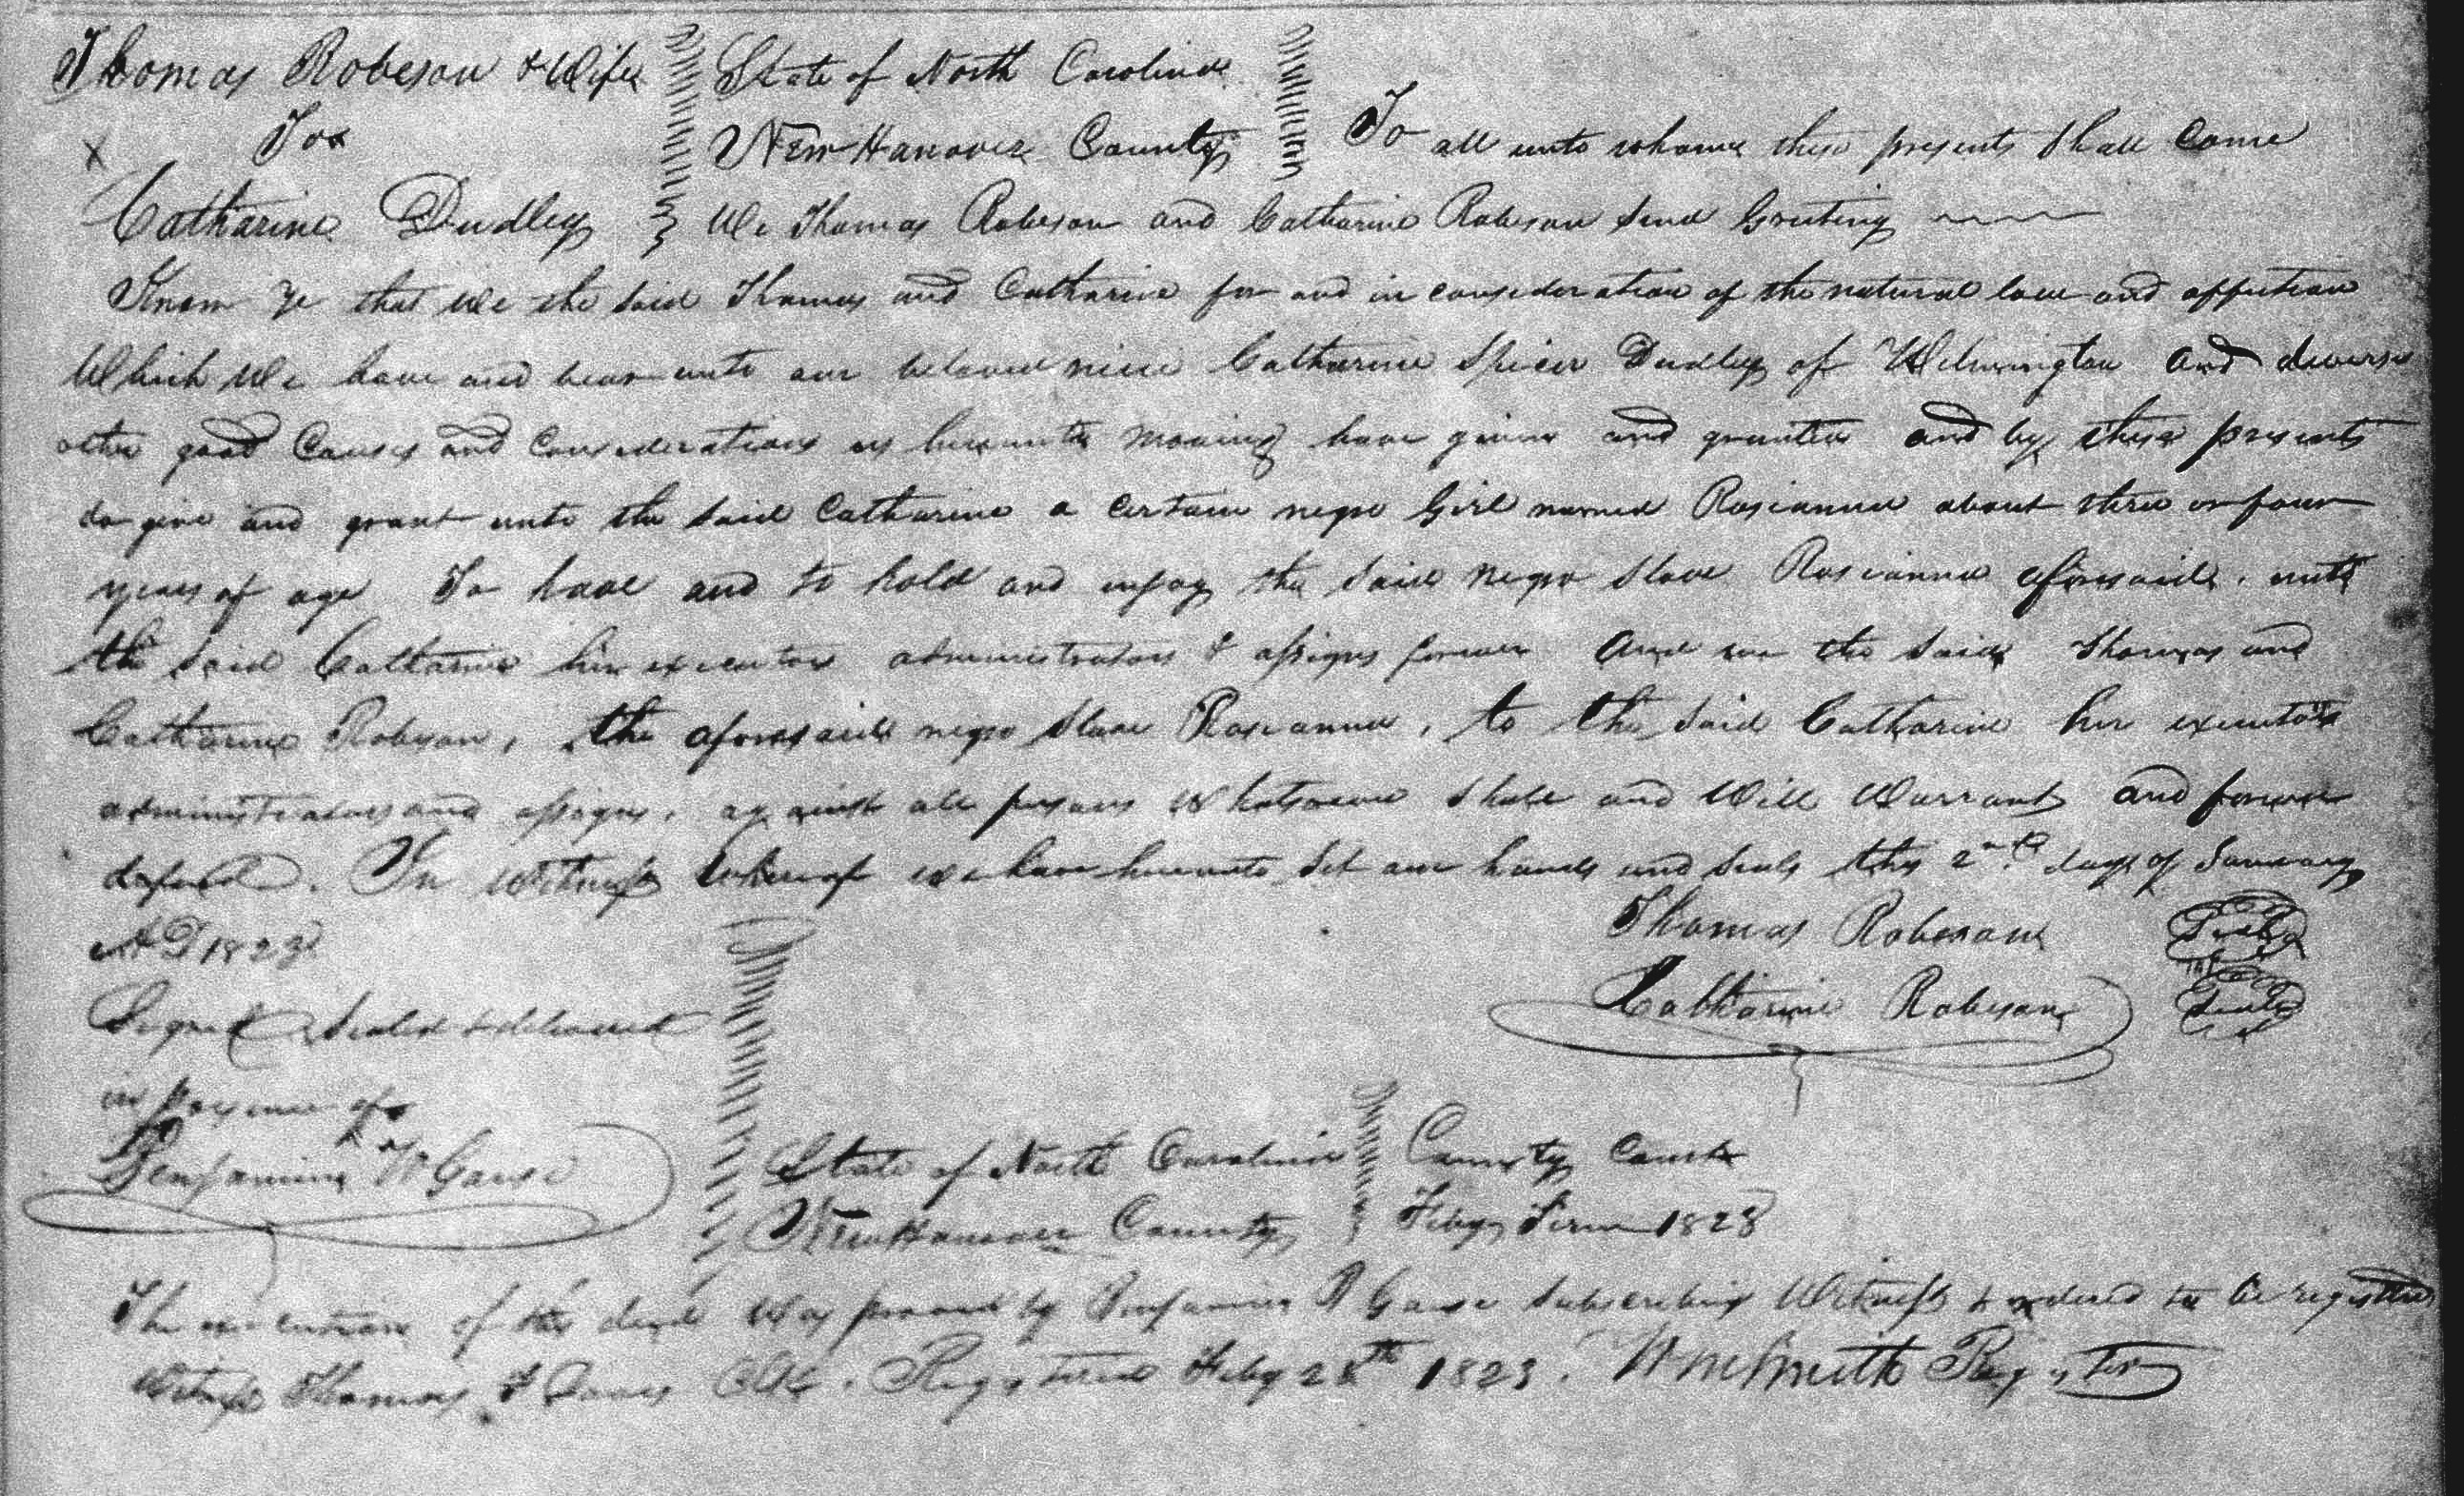 Thomas Robeson & Wife State of North Carolina
To New Hanover County To all unto whome these presents Shall Come
Catharine Dudley We Thomas Robeson and Catharine Robeson Send Greeting
Know Ye that we the said Thomas and Catharine for and in consideration of the natural love and affection
Which We have and bear unto our beloved niece Catharine Spicer Dudley of Wilmington and divers
other good Causes and Considerations us hereunto moving have given and granted and by these presents
do give and grant unto the said Catharine a certain negro Girl named Roseanna about three or four
years of age To have and to hold and enjoy the said negro Slave Roseanna aforesaid, unto
the said Catharine her executors administrators & assigns forever And we the said Thomas and
Catharine Robeson, the aforesaid negro Slave Roseanna, to the said Catharine her executors
administrators and assigns, against all persons Whatsoever Shall and Will Warrant and forever
defend. In Witness Whereof we have hereunto Set our hands and Seals this 2nd day of January
AD 1823 Thomas Robeson Seal
Signed Sealed & delivered Catharine Robeson Seal
in presence of
Benjamin W Gause State of North Carolina County Court
New Hanover County Feby Term 1823
The execution of this deed was proved by Benjamin Gause Subscribing Witness & ordered to be registered
Witness Thomas F Davis Clk. Registered Feby 28th 1823. Wm Smith Register